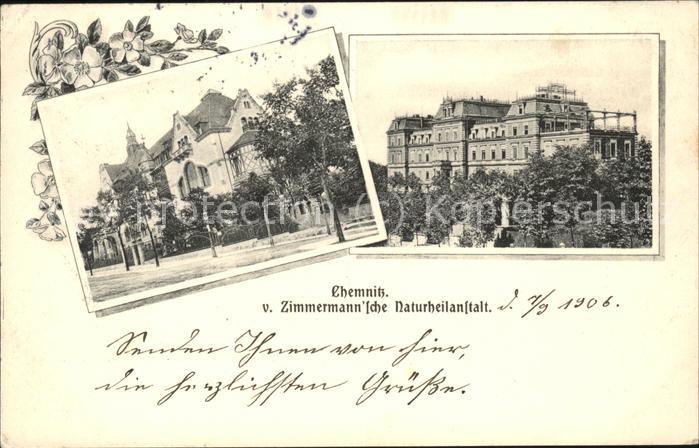 Protection © Kopierschutz
Chemnitz.
v. Zimmermann'sche Naturheilanstalt. d. 7/9 1906.
Senden Ihnen von hier,
die herzlichsten Grüße.